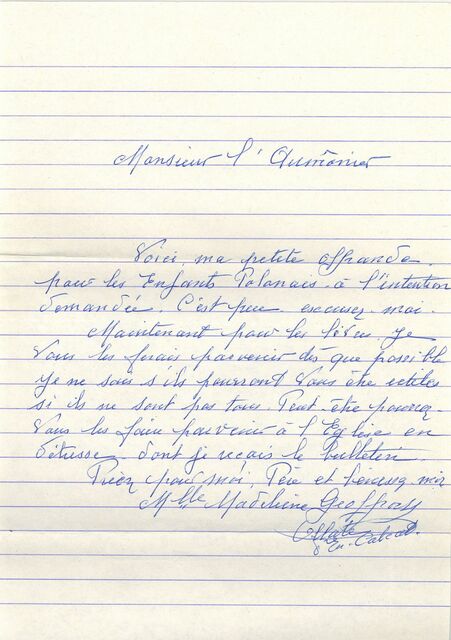 Monsieur l'Aumônier
Voici, ma petite offrande.
pour les Enfants Polonais. à l'intention
demandée. C'est peu excusez-moi.
Maintenant pour les je
Vous les ferais parvenir dès que possible
Je ne sais s'ils pourront Vous être utiles
si ils ne sont pas tous. Peut-être pourrez-
Vous les faire parvenir à l'Eglise en
détresse. dont je reçais le bulletin.
Priez pour moi. Père et bénissez moi
Mlle Madeleine Geoffroy